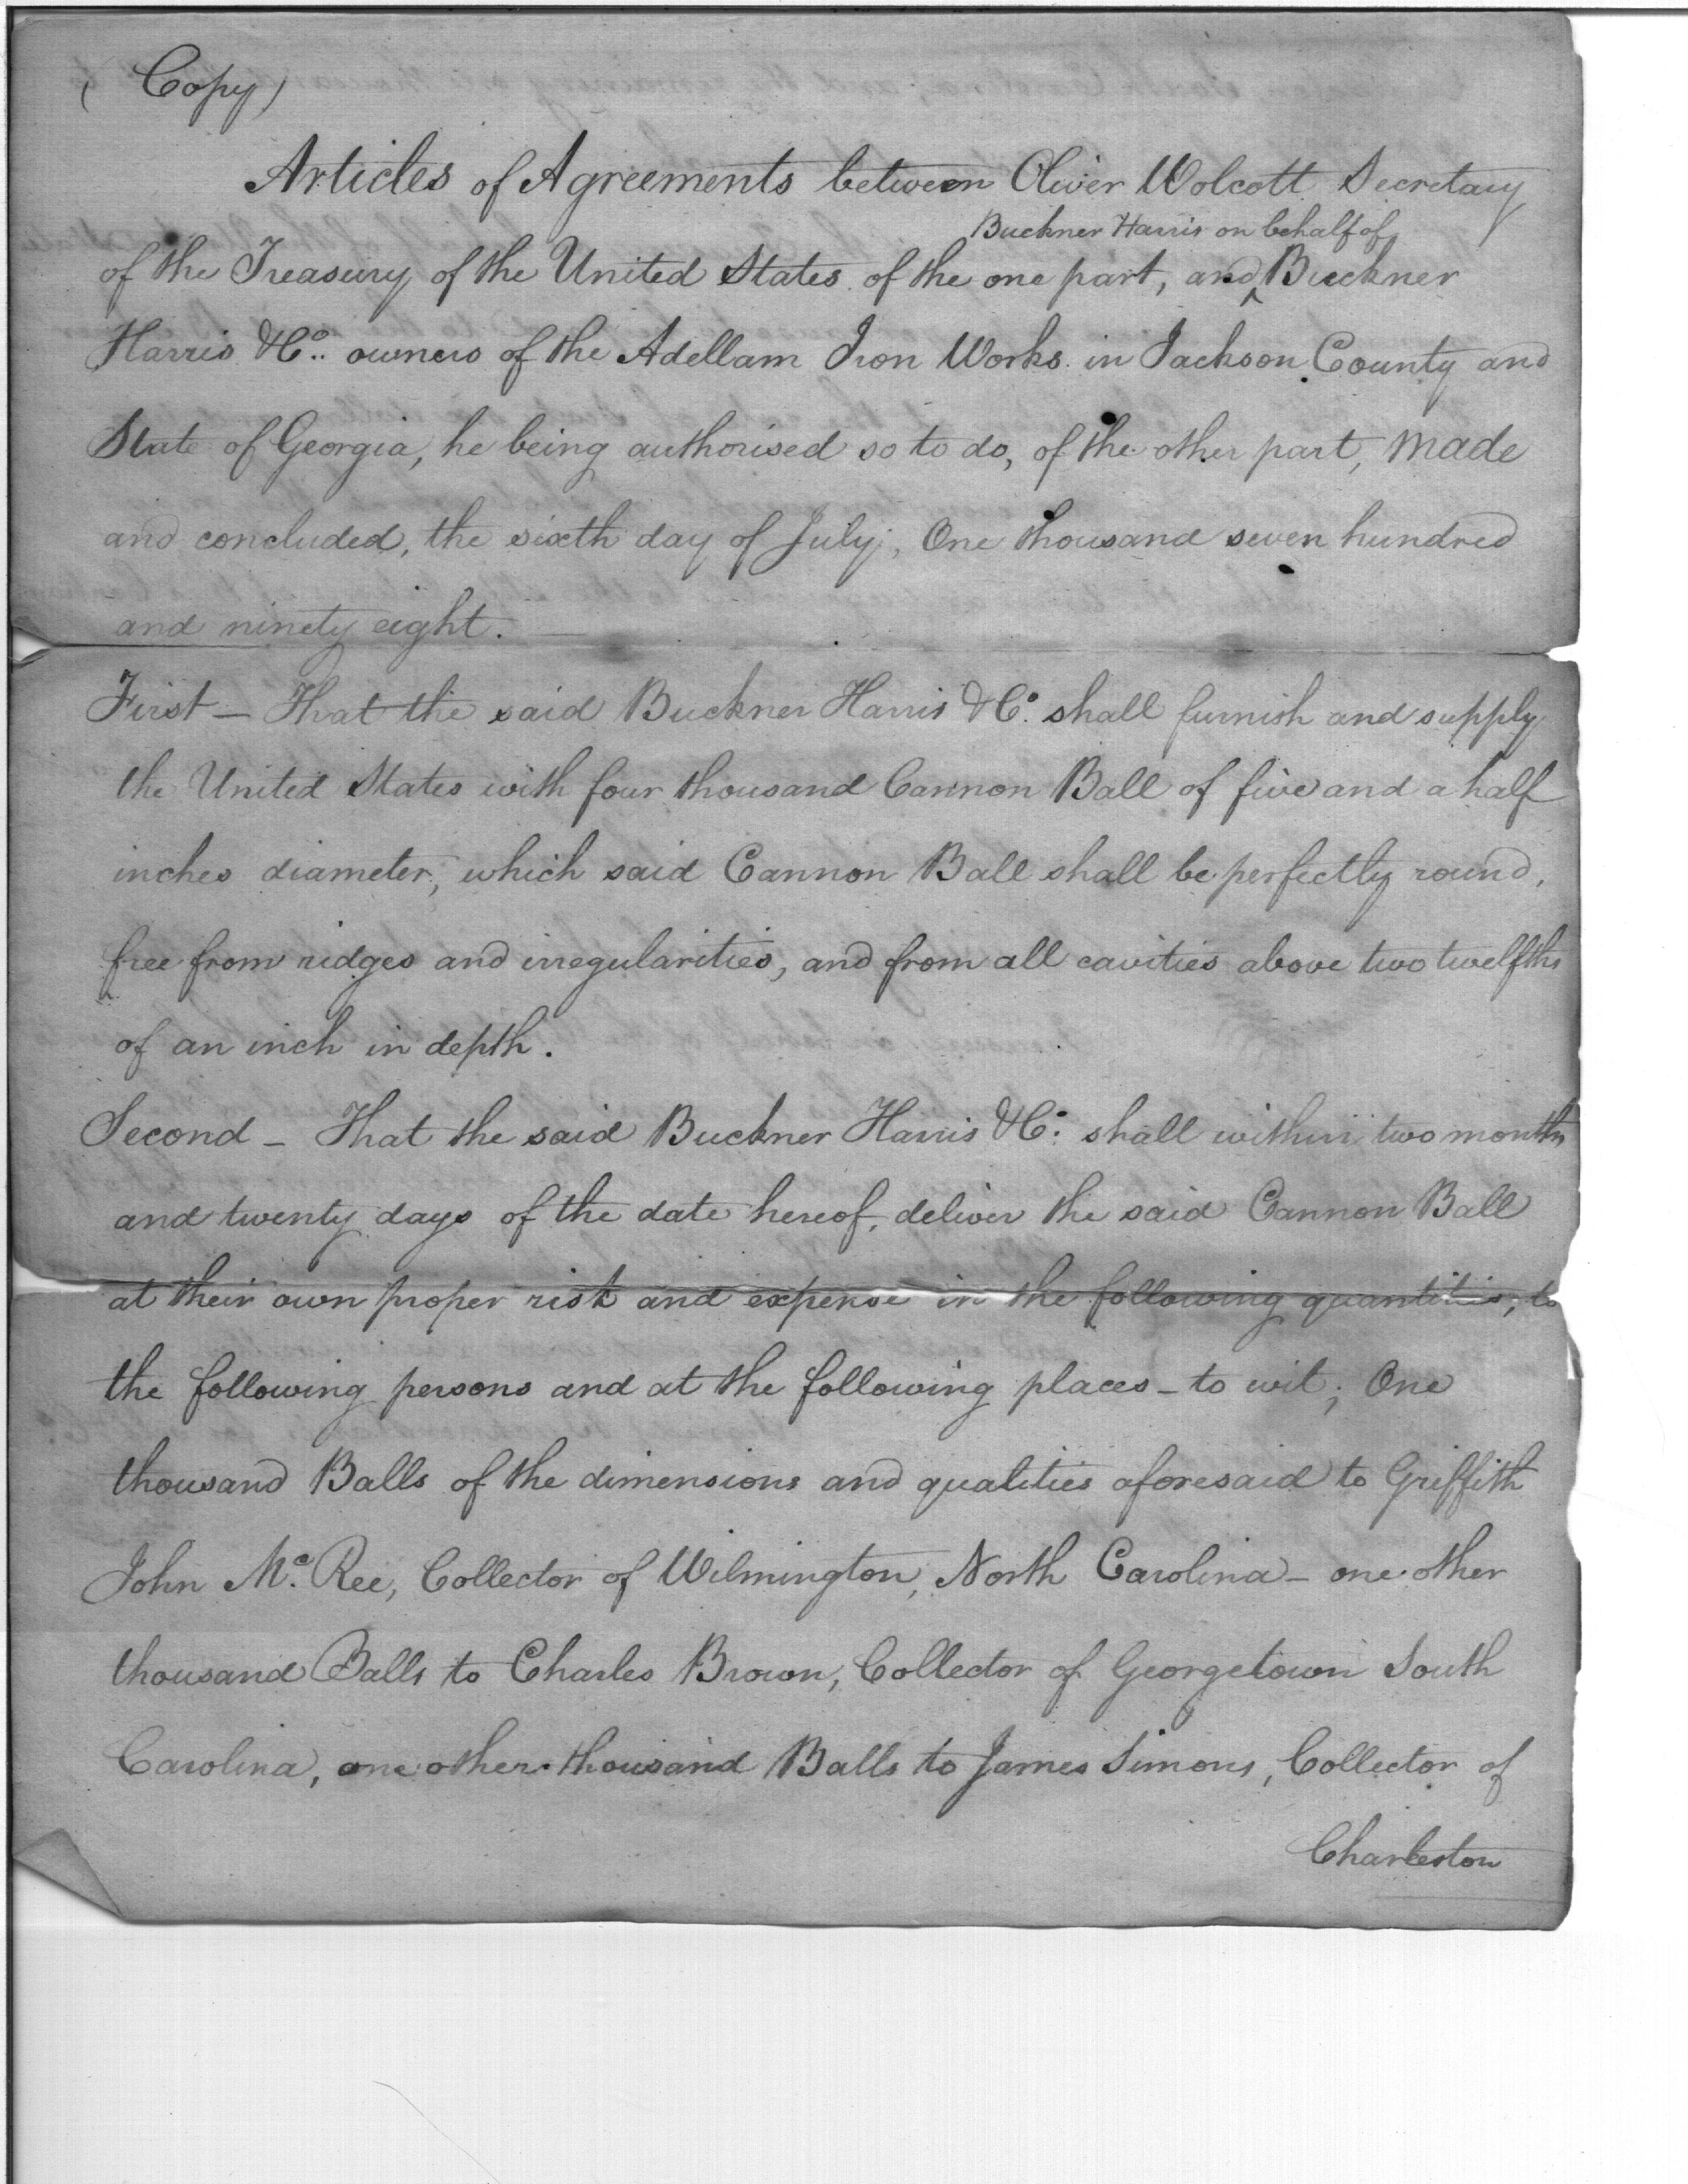 (Copy)
Articles of Agreements between Oliver Wolcott Secretary
Buckner Harris on behalf of
of the Treasury of the United States of the one part, and ^ Buckner
Harris & Co. owners of the Adellam Iron Works in Jackson County and
State of Georgia, he being authorised so to do, of the other part, made
and concluded, the sixth day of July, One thousand seven hundred
and ninety eight. —
First — That the said Buckner Harris & Co. shall furnish and supply
the United States with four thousand Cannon Ball of five and a half
inches diameter, which said Cannon Ball shall be perfectly round,
free from ridges and irregularities, and from all cavities above two twelfths
of an inch in depth.
Second — That the said Buckner Harris & Co. shall within two months
and twenty days of the date hereof, deliver the said Cannon Ball
at their own proper risk and expense in the following quantities, to
the following persons and at the following places — to wit; One
thousand Balls of the dimensions and qualities aforesaid to Griffith
John Mc. Ree, Collector of Wilmington, North Carolina — one other
thousand Balls to Charles Brown, Collector of Georgetown South
Carolina, one other thousand Balls to James Simons, Collector of
Charleston